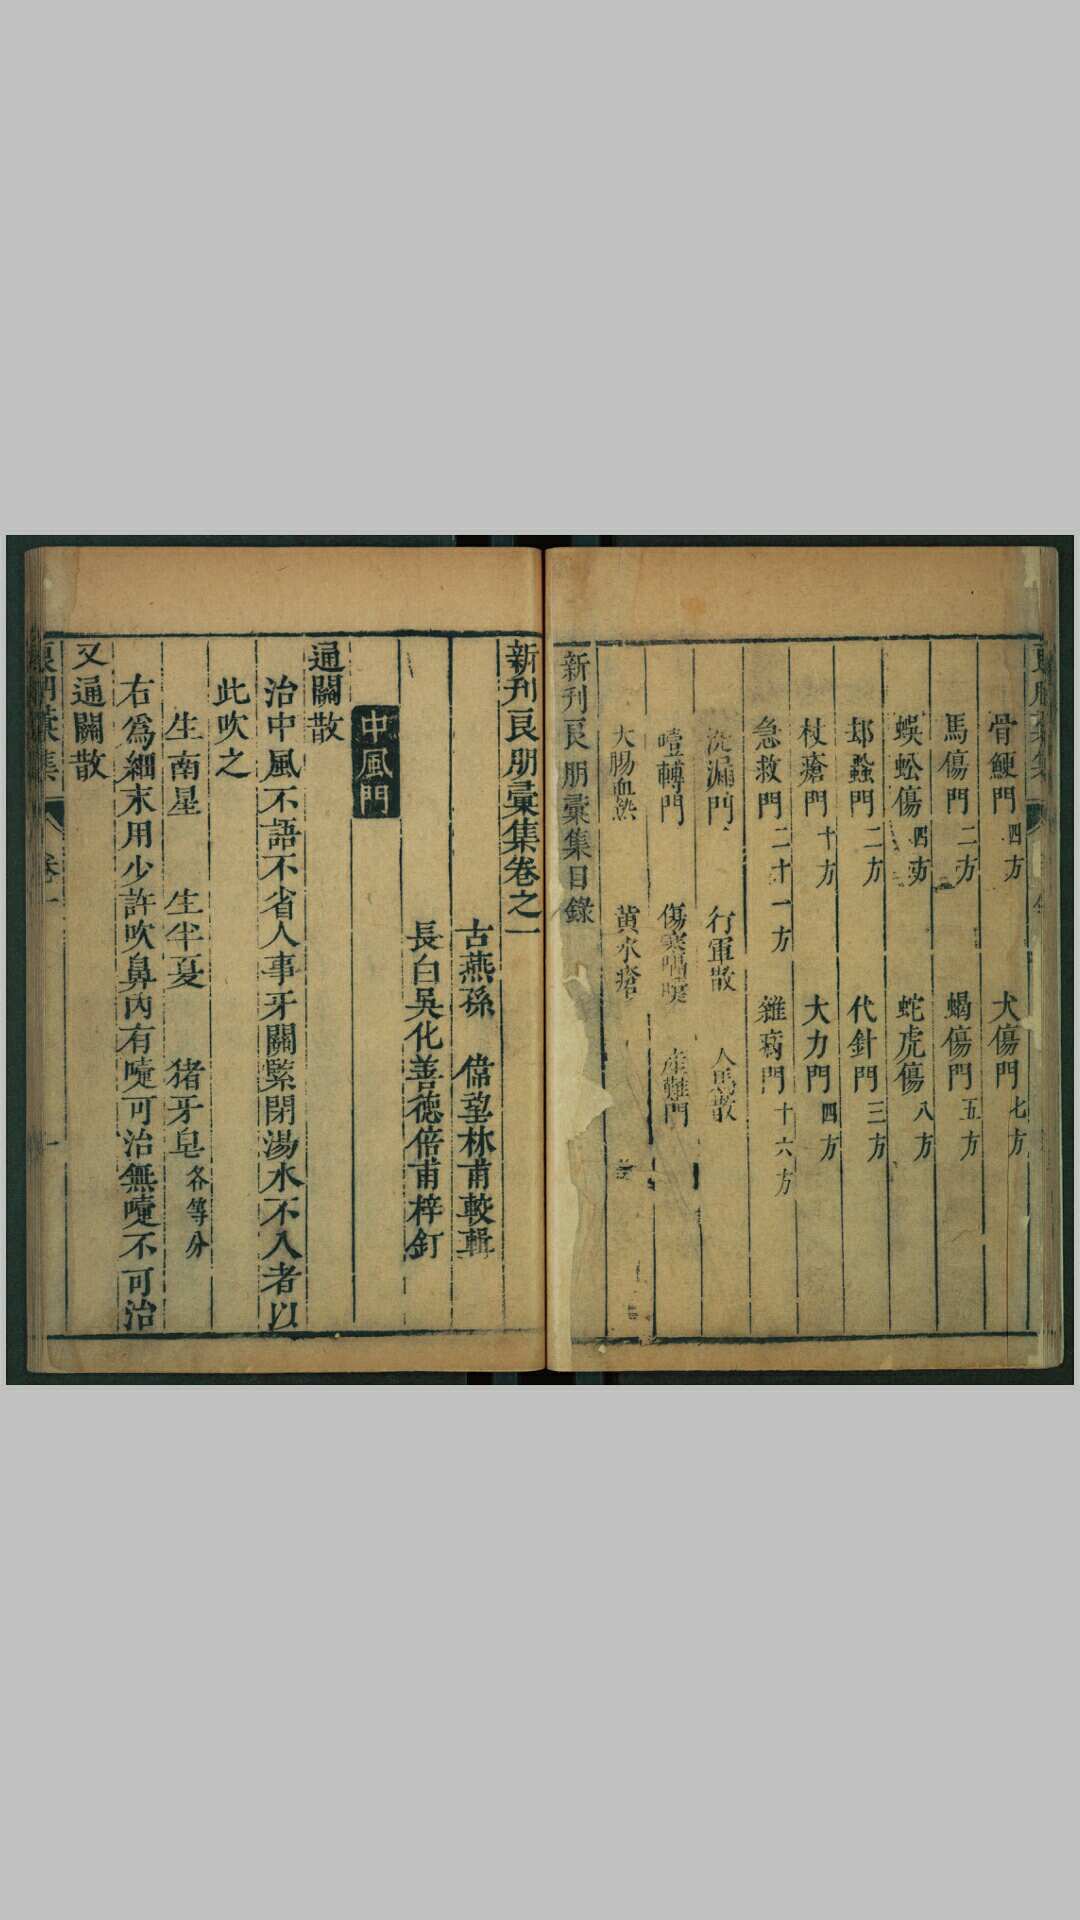 骨鯁門四方 犬傷門七方
馬傷門二方 蝎傷門五方
蜈蚣傷四方 蛇虎傷八方
邯螫門二方 代針門三方
杖瘡門十方 大力門四方
急救門二十一方 雜病門十六方
漏門 行軍散
門 傷寒 產難門
大腸血熱 黃水瘡
新刊良朋彙集目錄
新刊良朋彙集卷之一
古燕孫 偉望林甫較輯
長白吳化善德倍甫梓訂
中風門
通關散
治中風不語不省人事牙關緊閉湯水不入者以
此吹之
生南星 生半夏 猪牙皂各等分
右爲細末用少許吹鼻內有嚏可治無嚏不可治
又通關散
良朋彙集 卷一 一